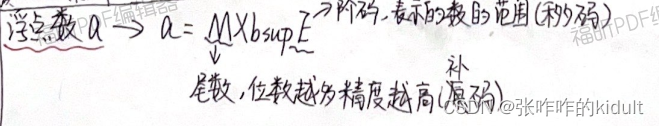 浮点数a → a = M×bsupE → 阶码,表示的数的范围(移码)
尾数,位数越多精度越高(原码)
补
福昕PDF编辑器
福昕PDF编
CSDN @张咋咋的kidult